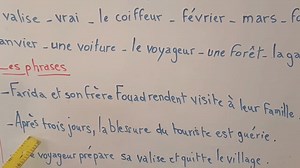 valise - vrai - le coiffeur - février - mars - f
anvier - une voiture - le voyageur - une forêt - la ga
es phrases
- Farida et son frère Fouad rendent visite à leur famille
- Après trois jours, la blessure du touriste est guérie.
voyageur prépare sa valise et quitte le village.